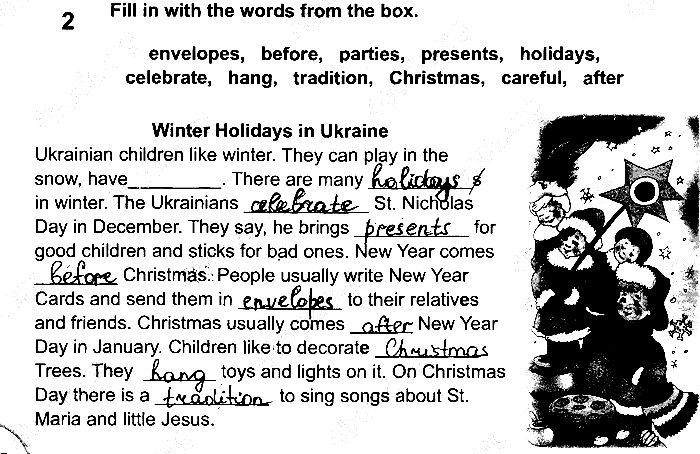 2 Fill in with the words from the box.
envelopes, before, parties, presents, holidays,
celebrate, hang, tradition, Christmas, careful, after
Winter Holidays in Ukraine
Ukrainian children like winter. They can play in the
snow, have_________. There are many holidays
in winter. The Ukrainians celebrate St. Nicholas
Day in December. They say, he brings presents for
good children and sticks for bad ones. New Year comes
before Christmas. People usually write New Year
Cards and send them in envelopes to their relatives
and friends. Christmas usually comes after New Year
Day in January. Children like to decorate Christmas
Trees. They hang toys and lights on it. On Christmas
Day there is a tradition to sing songs about St.
Maria and little Jesus.